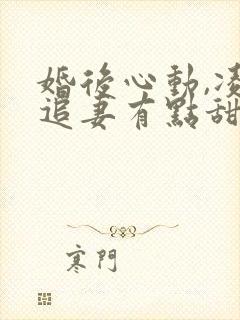 婚後心動,凌
追妻有點甜
寒門